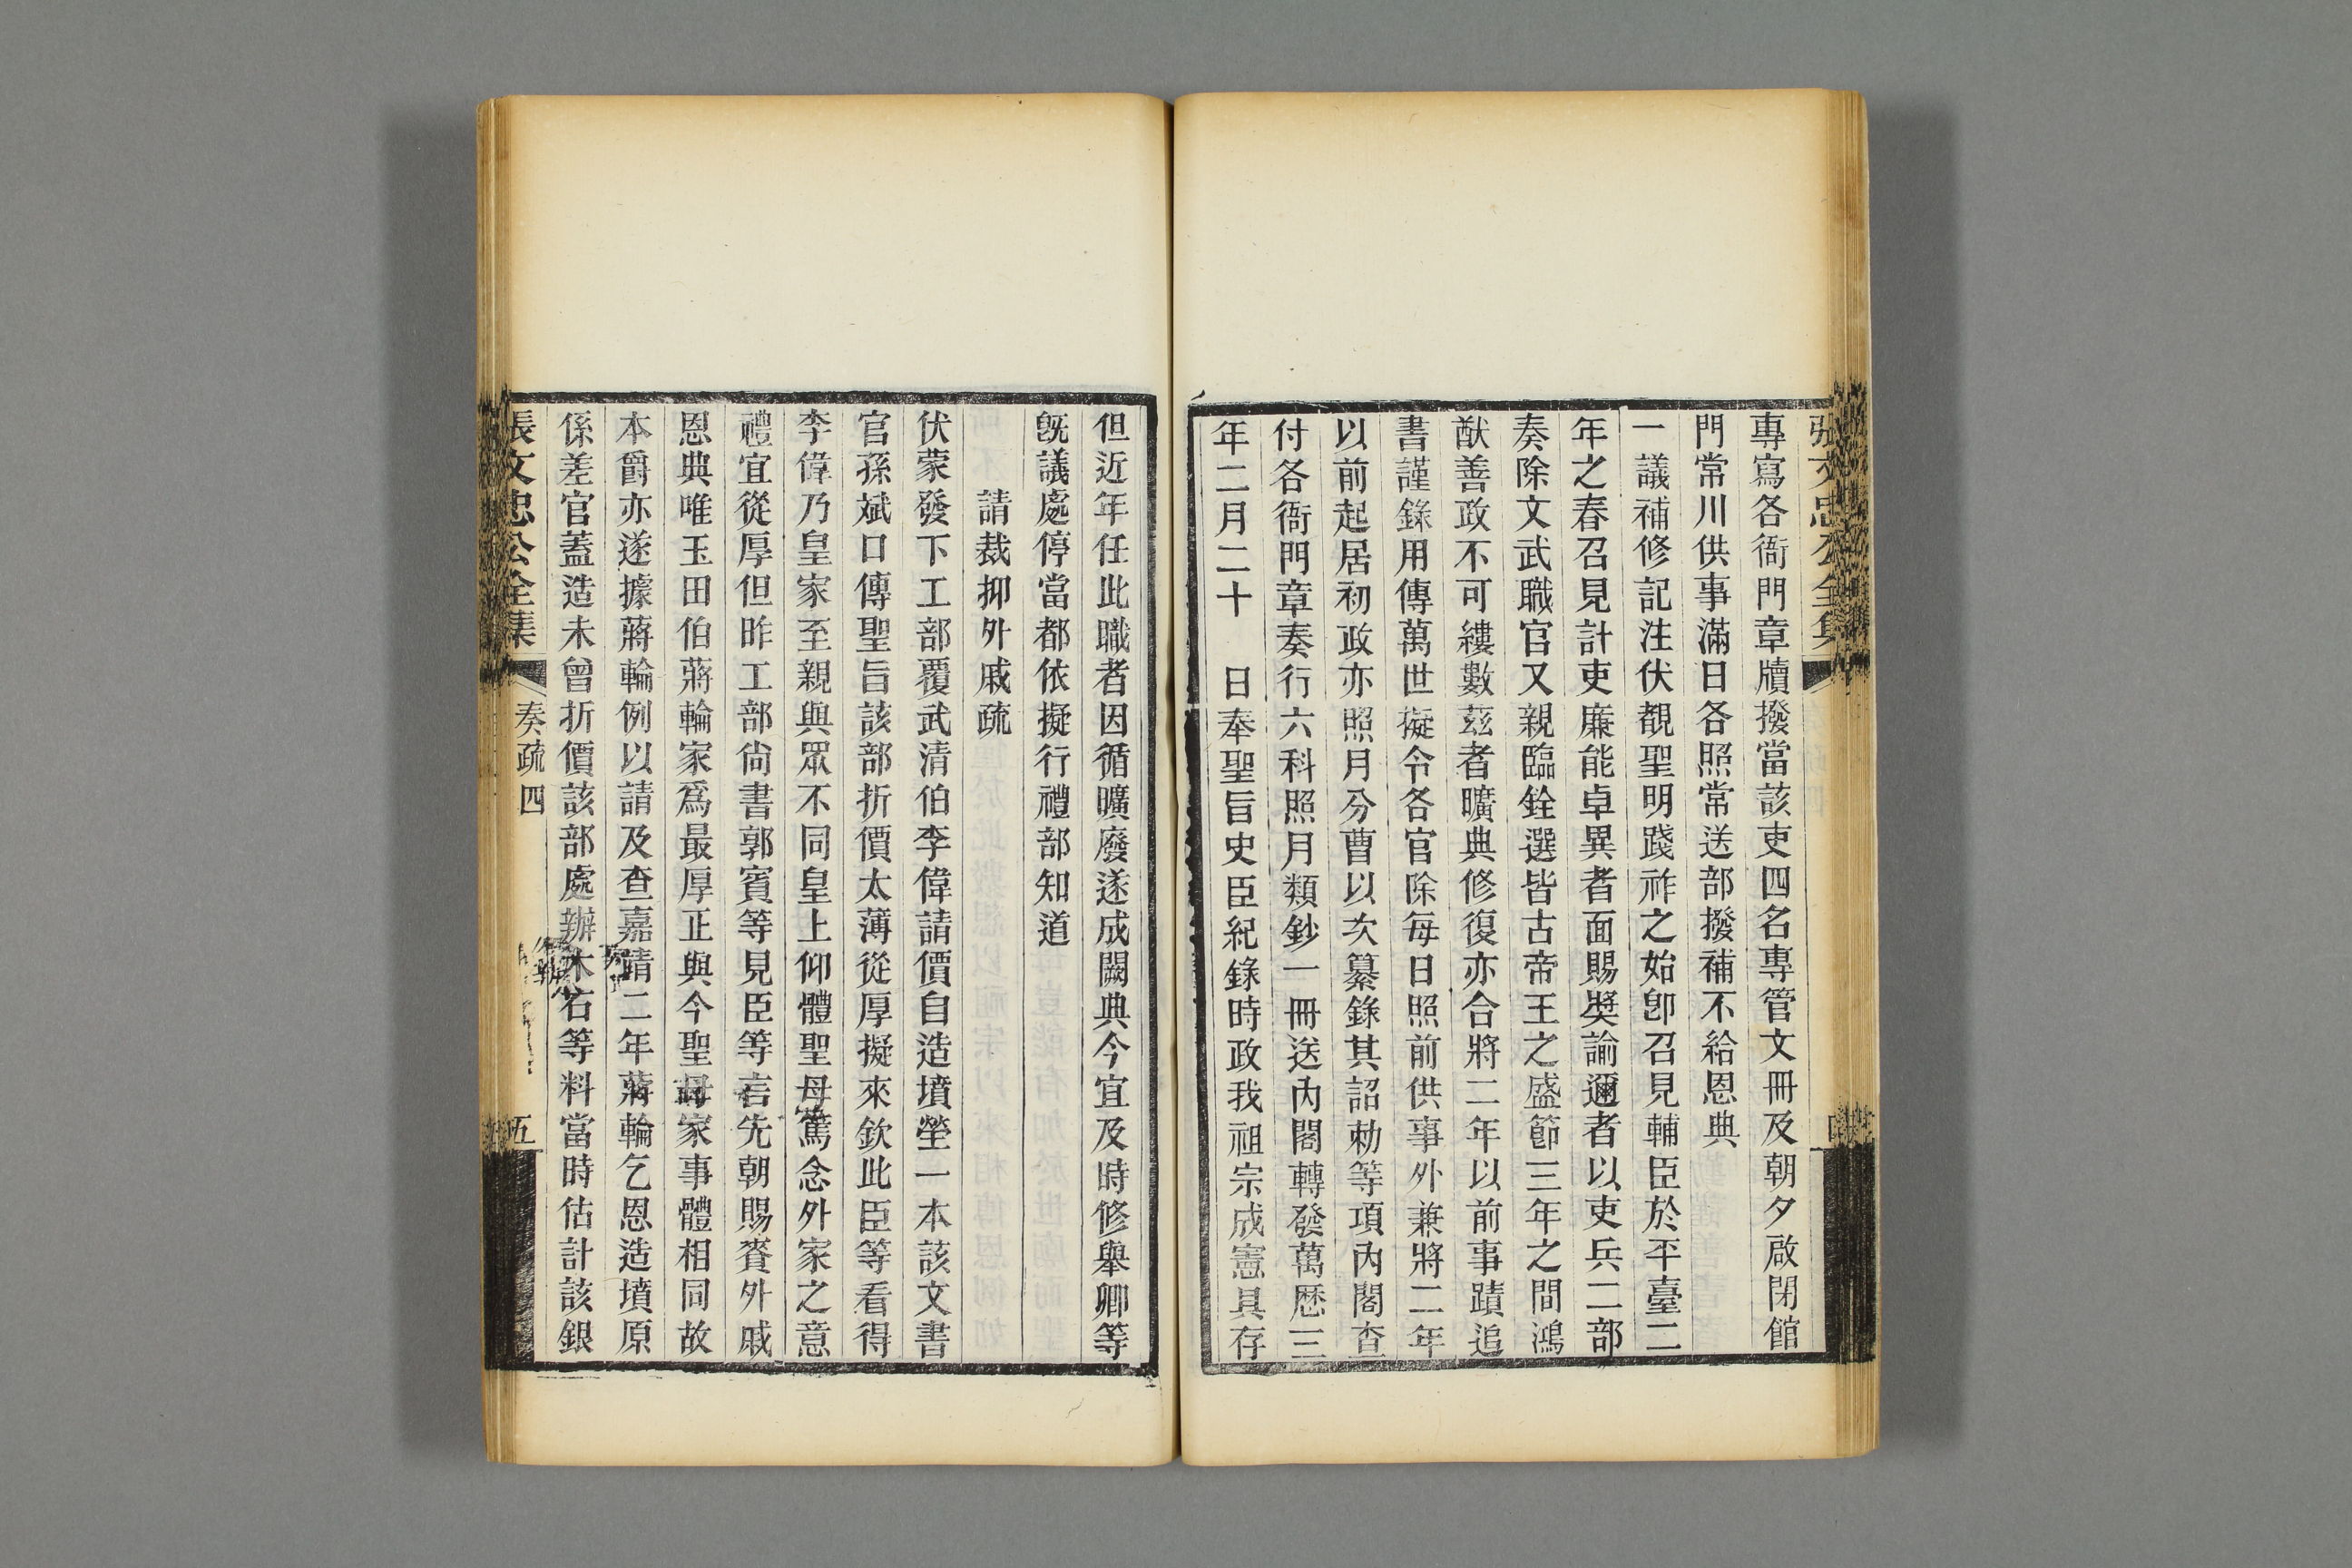 張文忠公全集
專寫各衙門章牘撥當該吏四名專管文冊及朝夕啟閉館
門常川供事滿日各照常送部撥補不給恩典
一議補修記注伏覩聖明踐祚之始卽召見輔臣於平臺二
年之春召見計吏廉能卓異者面賜奬諭邇者以吏兵二部
奏除文武職官又親臨銓選皆古帝王之盛節三年之間鴻
猷善政不可縷數茲者曠典修復亦合將二年以前事蹟追
書謹錄用傳萬世擬令各官除每日照前供事外兼將二年
以前起居初政亦照月分曹以次纂錄其詔勅等項內閣查
付各衙門章奏行六科照月類鈔一冊送內閣轉發萬歷三
年二月二十 日奉聖旨史臣紀錄時政我祖宗成憲具存
但近年任此職者因循曠廢遂成闕典今宜及時修舉卿等
旣議處停當都依擬行禮部知道
請裁抑外戚疏
伏蒙發下工部覆武清伯李偉請價自造墳塋一本該文書
官孫斌口傳聖旨該部折價太薄從厚擬來欽此臣等看得
李偉乃皇家至親與眾不同皇上仰體聖母篤念外家之意
禮宜從厚但昨工部尙書郭賓等見臣等言先朝賜賚外戚
恩典唯玉田伯蔣輪家爲最厚正與今聖母家事體相同故
本爵亦遂據蔣輪例以請及查嘉靖二年蔣輪乞恩造墳原
係差官蓋造未曾折價該部處辦木石等料當時估計該銀
張文忠公全集
奏疏四
五